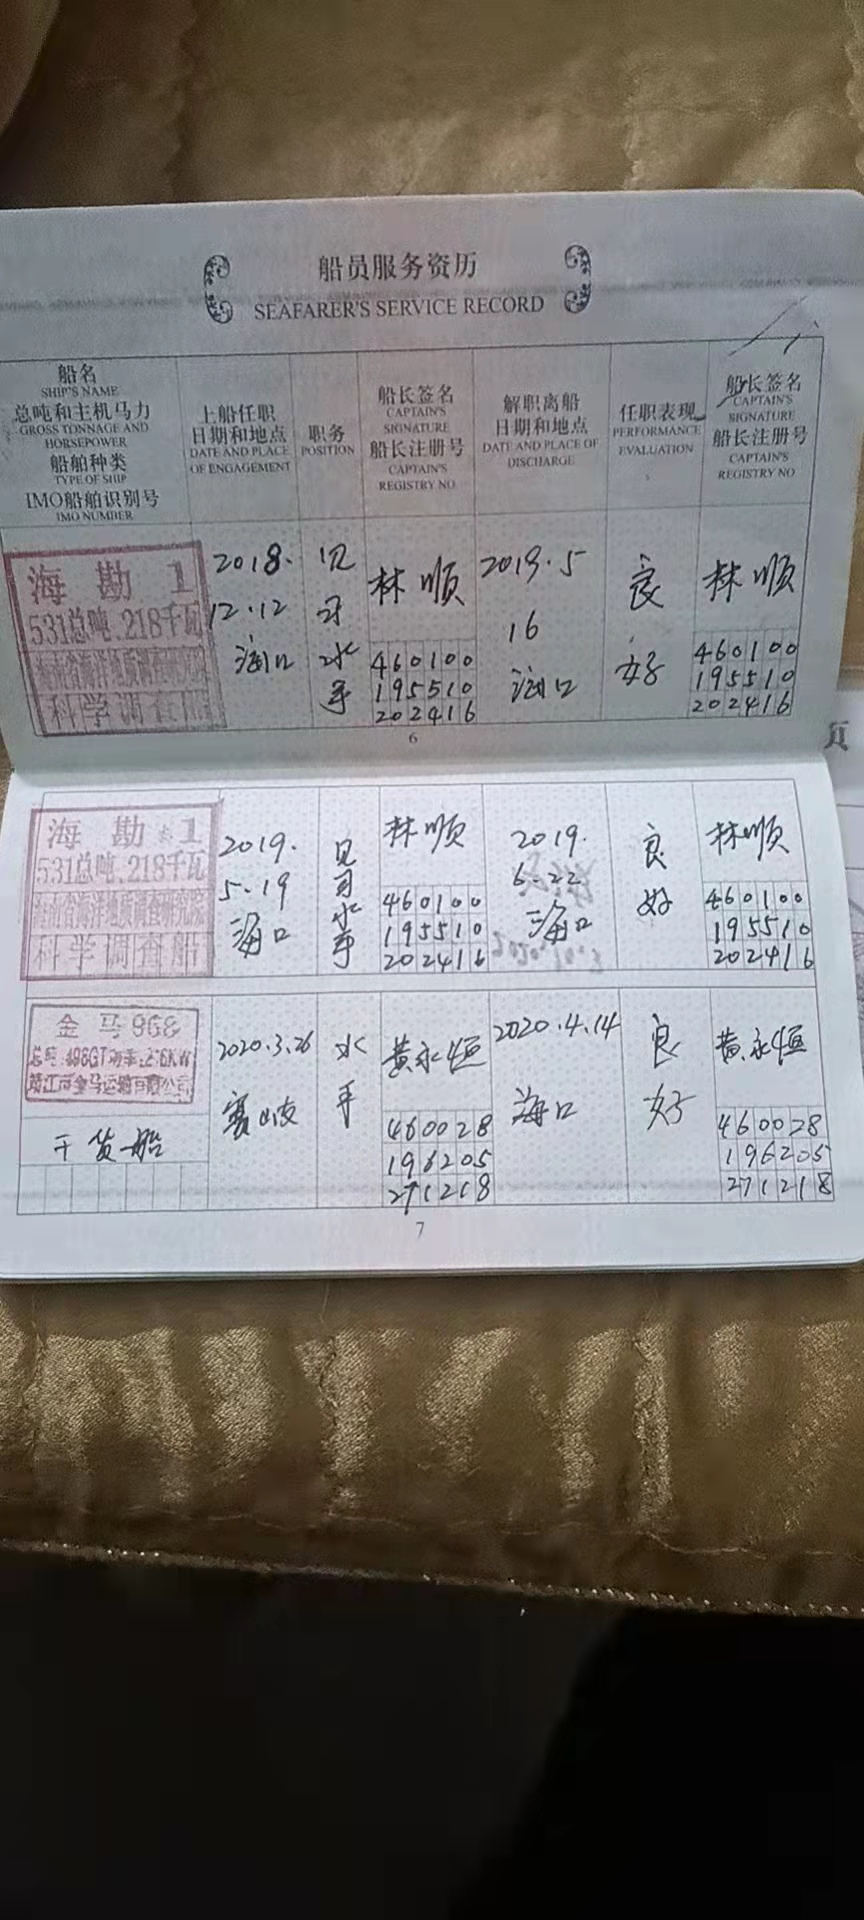 船员服务资历
SEAFARER'S SERVICE RECORD
船名
SHIP'S NAME
总吨和主机马力
GROSS TONNAGE AND
HORSEPOWER
船舶种类
TYPE OF SHIP
IMO船舶识别号
IMO NUMBER
上船任职
日期和地点
DATE AND PLACE
OF ENGAGEMENT
职务
POSITION
船长签名
CAPTAIN'S
SIGNATURE
船长注册号
CAPTAIN'S
REGISTRY NO
解职离船
日期和地点
DATE AND PLACE OF
DISCHARGE
任职表现
PERFORMANCE
EVALUATION
船长签名
CAPTAIN'S
SIGNATURE
船长注册号
CAPTAIN'S
REGISTRY NO
海勘1
531总吨、218千瓦
海南省海洋地质调查研究院
科学调查船
2018.
12.12
海口
见
习
水
手
林顺
460100
195510
202416
2019.5
16
海口
良
好
林顺
460100
195510
202416
6
海勘1
531总吨、218千瓦
海南省海洋地质调查研究院
科学调查船
2019.
5.19
海口
见
习
水
手
林顺
460100
195510
202416
2019.
6.22
海口
良
好
林顺
460100
195510
202416
金马968
总吨:496GT
金马运输有限公司
干货船
2020.3.26
赛岐
水
手
黄永恒
460028
196205
271218
2020.4.14
海口
良
好
黄永恒
460028
196205
271218
7
页